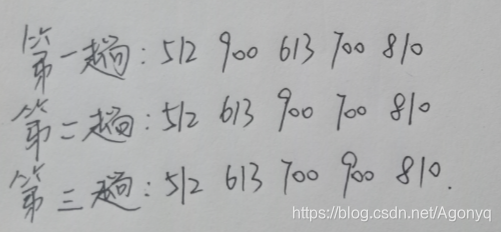 第一趟：512 900 613 700 810
第二趟：512 613 900 700 810
第三趟：512 613 700 900 810.
https://blog.csdn.net/Agonyq